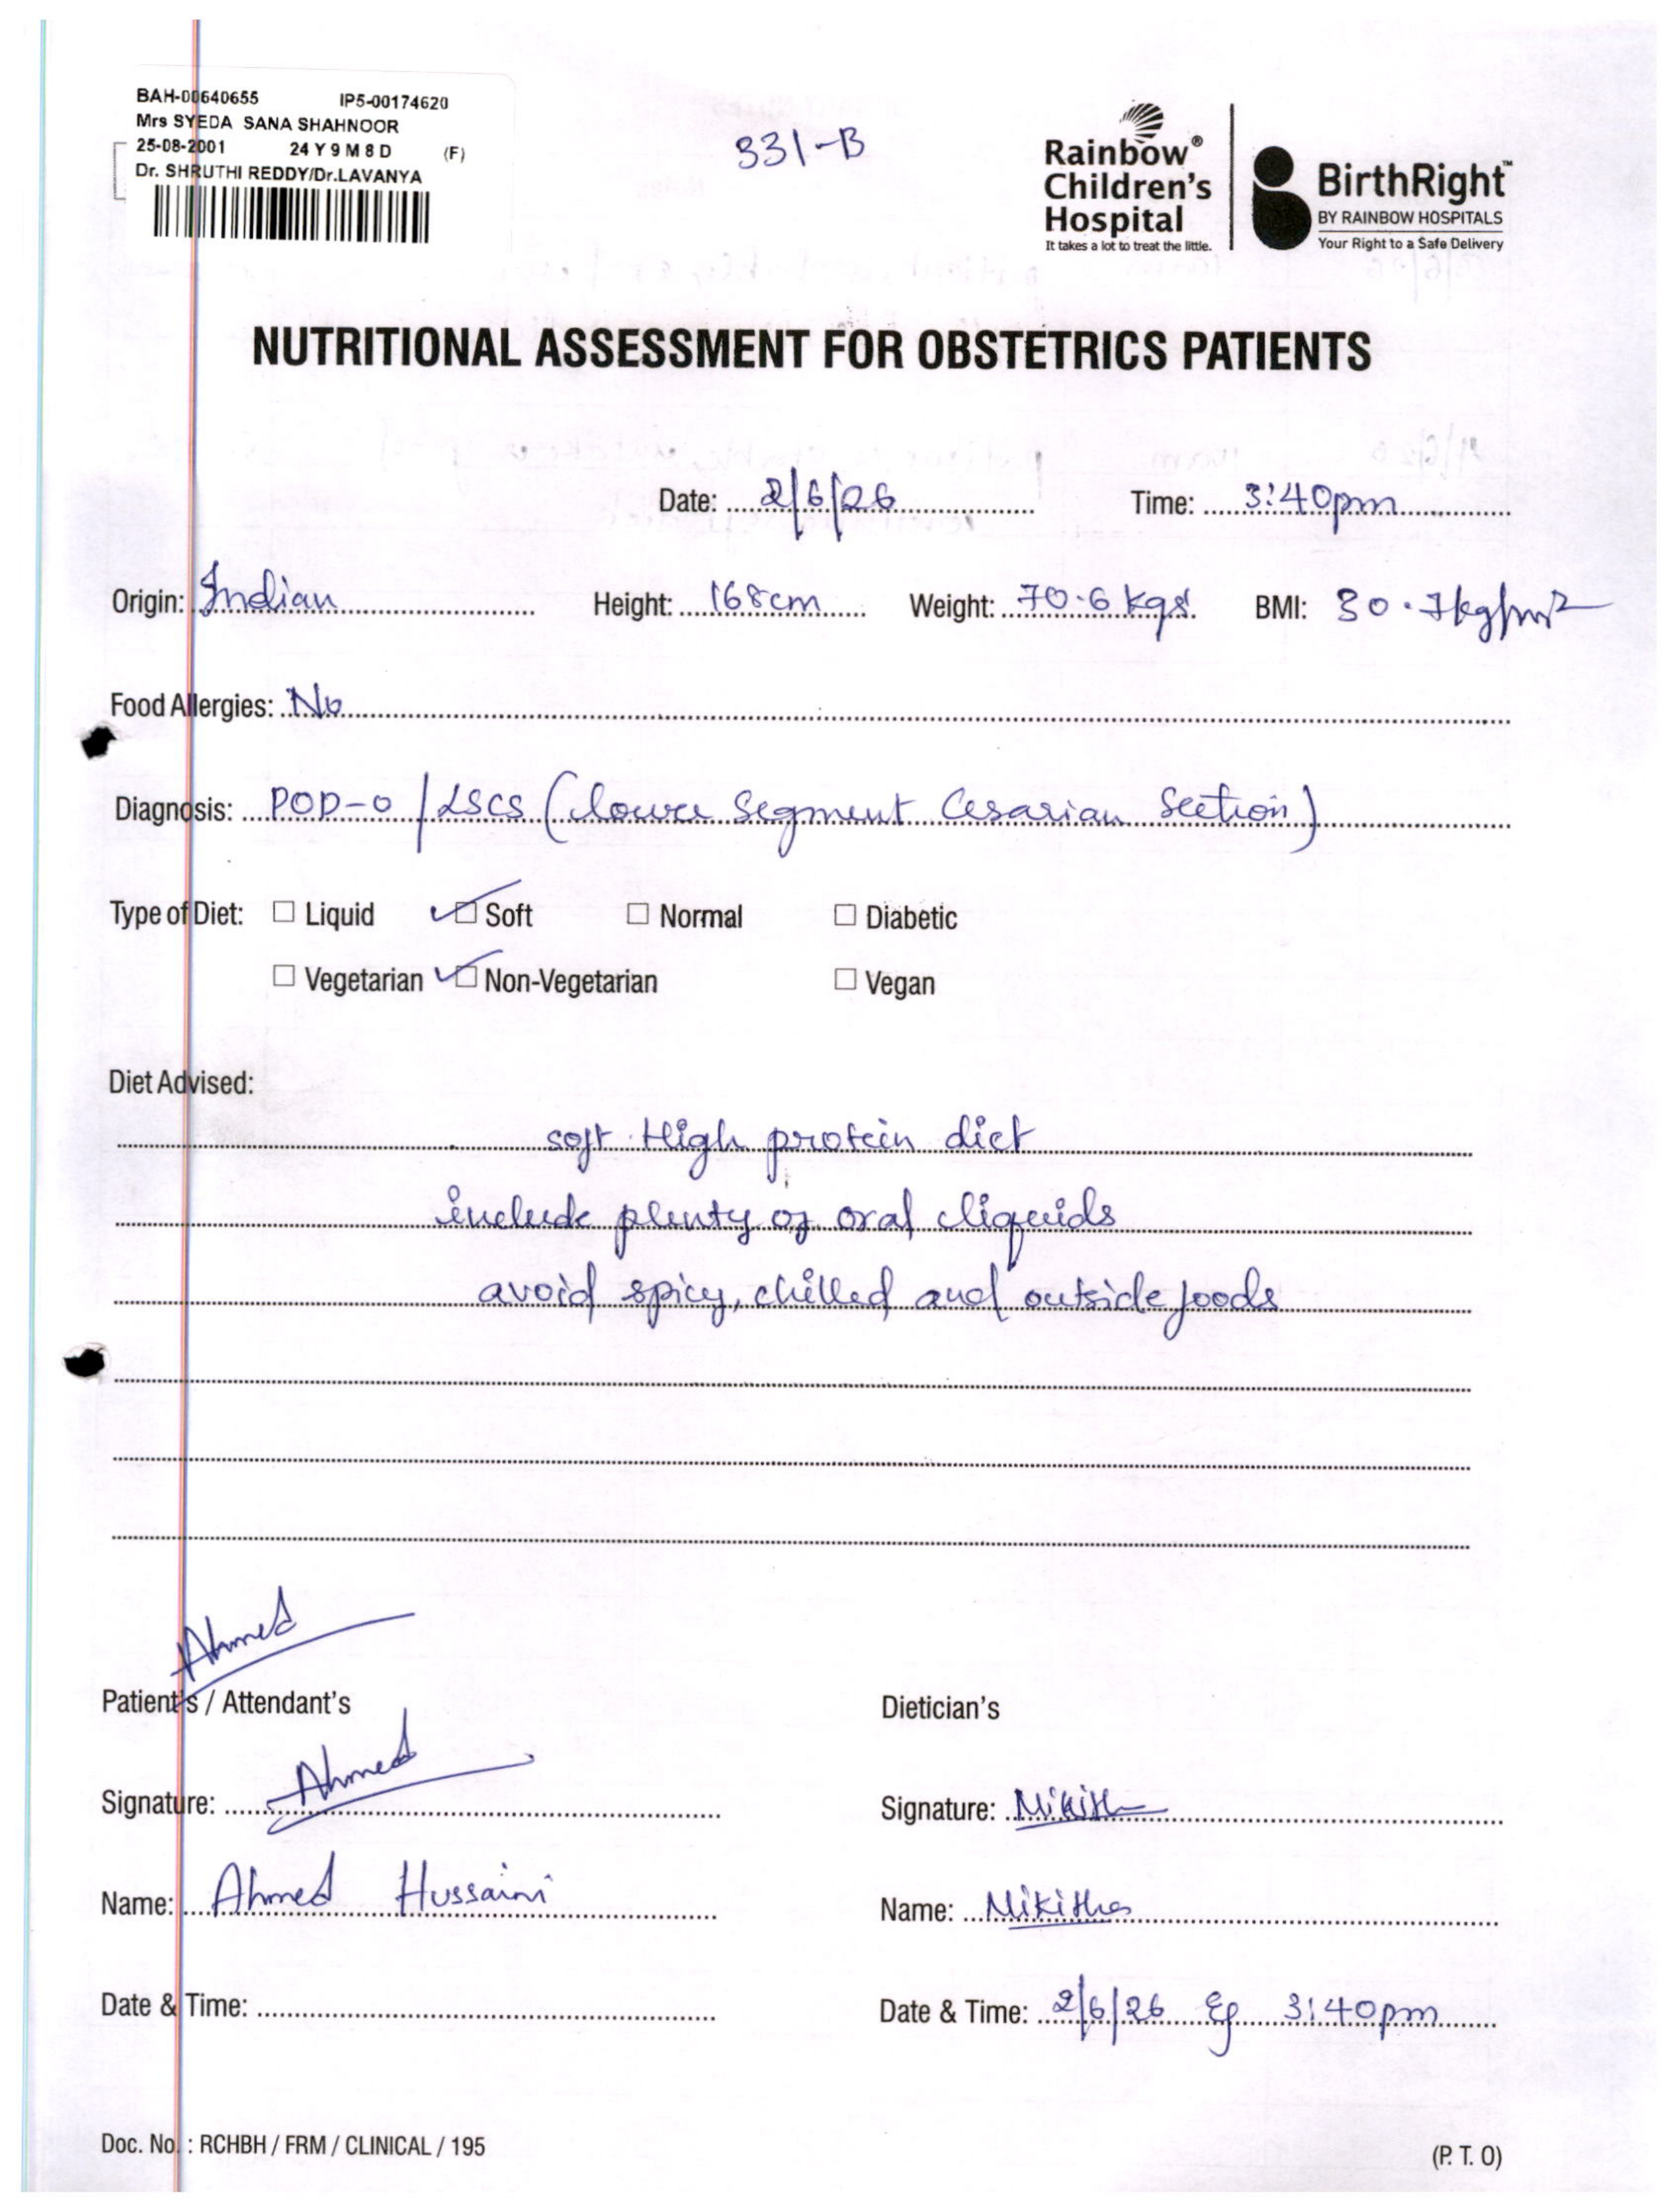 BAH-00640655 IP5-00174620
Mrs SYEDA SANA SHAHNOOR
25-08-2001 24 Y 9 M 8 D (F)
Dr. SHRUTHI REDDY/Dr.LAVANYA
331-B
Rainbow®
Children's
Hospital
It takes a lot to treat the little.
BirthRight™
BY RAINBOW HOSPITALS
Your Right to a Safe Delivery
NUTRITIONAL ASSESSMENT FOR OBSTETRICS PATIENTS
Date: 2/6/26 Time: 3:40pm
Origin: Indian Height: 168cm Weight: 70.6 kgs BMI: 30.7kg/m²
Food Allergies: No
Diagnosis: POD-0 / LSCS (lower Segment Cesarian Section)
Type of Diet: ☐ Liquid ☑ Soft ☐ Normal ☐ Diabetic
☐ Vegetarian ☑ Non-Vegetarian ☐ Vegan
Diet Advised:
soft High protein diet
include plenty of oral liquids
avoid spicy, chilled and outside foods
Ahmed
Patient's / Attendant's Dietician's
Signature: Ahmed Signature: Nikitha
Name: Ahmed Hussaini Name: Nikitha
Date & Time: Date & Time: 2/6/26 3:40pm
Doc. No. : RCHBH / FRM / CLINICAL / 195 (P. T. O)